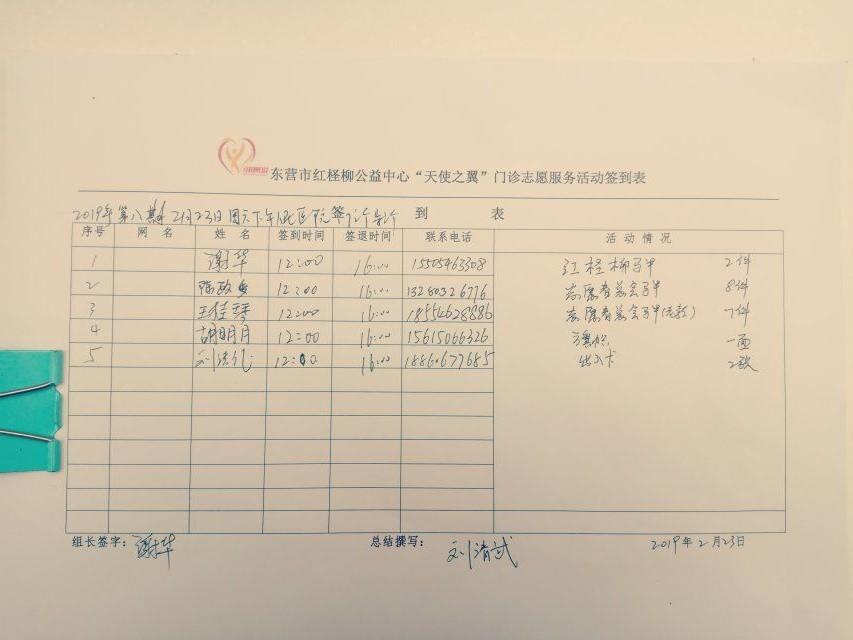 东营市红柽柳公益中心“天使之翼”门诊志愿服务活动签到表
2019年第八期2月23日周六下午 医院 导诊 签到表
序号 网名 姓名 签到时间 签退时间 联系电话 活动情况
1 谢华 12:00 16:00 15505463308 红柽柳马甲 2件
2 12:00 16:00 13280326776 志愿者总会马甲 8件
3 王佳琴 12:00 16:00 18554628886 志愿者总会马甲 7件
4 胡明月 12:00 16:00 15615066326 旗帜 一面
5 12:00 16:00 18860677685 出入卡 2张
组长签字：谢华 总结撰写：刘清武 2019年2月23日